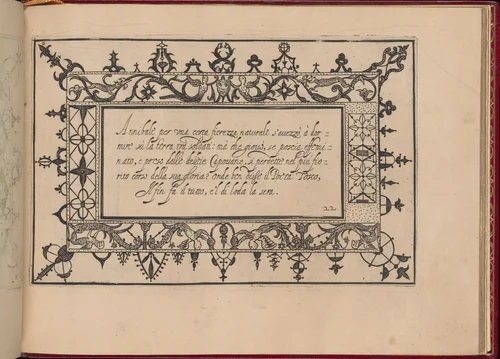 Annibale per una certa fierezza naturale s'avezzò à dor-
mire sù la terra trà soldati: mà che giovò, se poscia effemi-
nato, e preso dalle delitie Capovane, si perdette nel più fio-
rito corso della sua gloria? Onde ben disse il Poeta Tosco,
Il fin fà il tutto, e'l dì loda la sera.
22